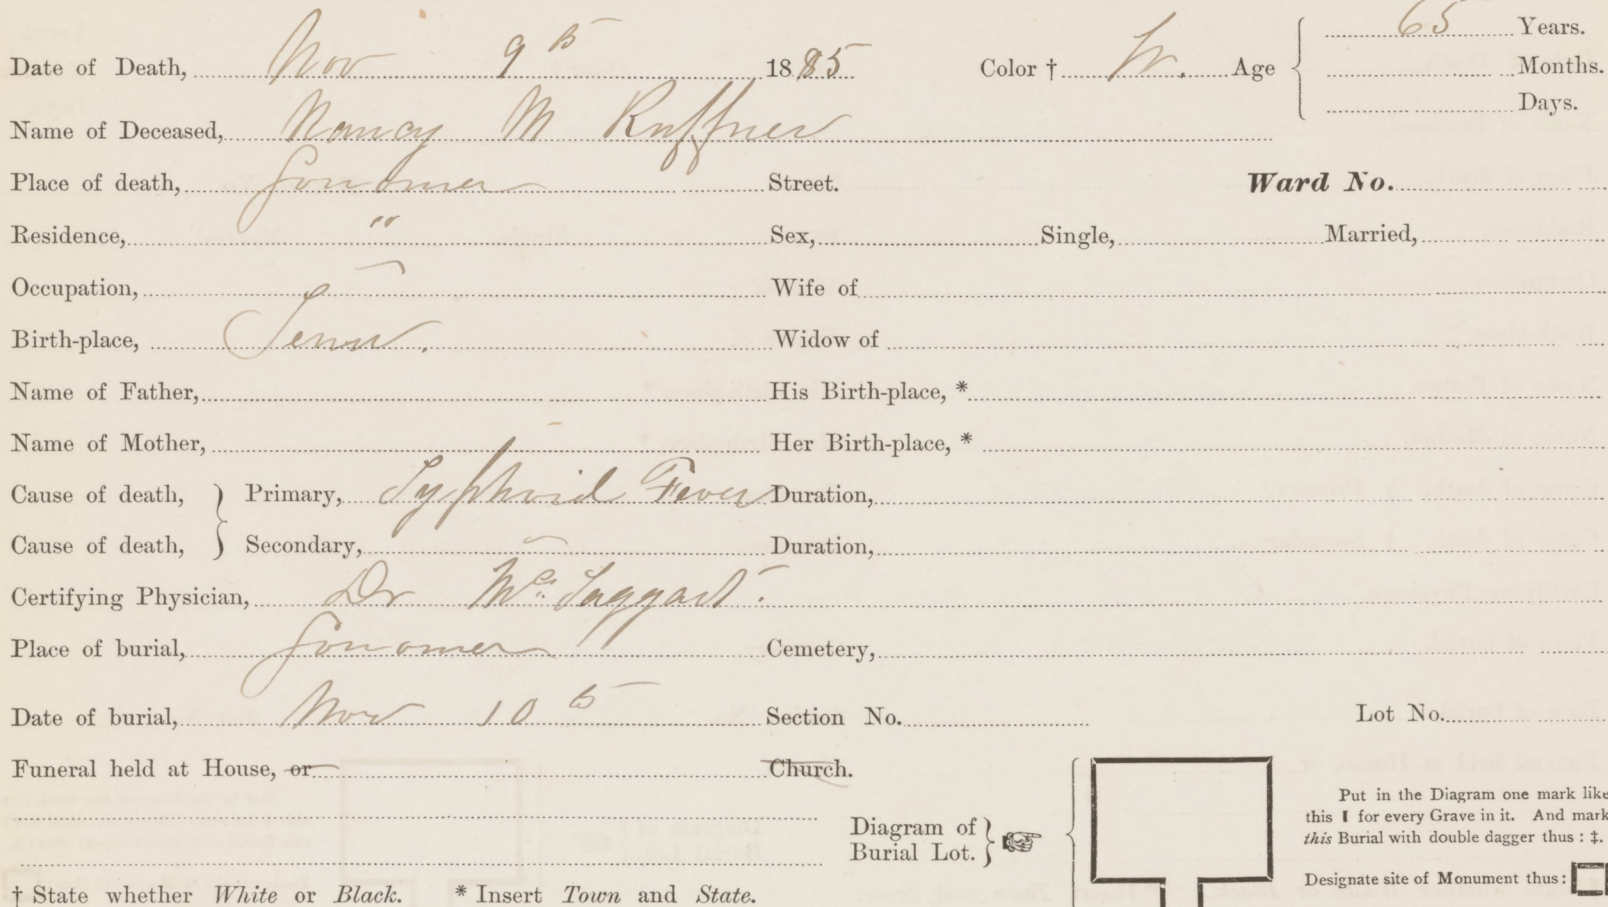 Date of Death, Nov 9th 1885 Color † W. Age 65 Years.
Months.
Days.
Name of Deceased, Nancy M Ruffner
Place of death, Sonoma Street. Ward No.
Residence, " Sex, Single, Married,
Occupation, Wife of
Birth-place, Tenn. Widow of
Name of Father, His Birth-place, *
Name of Mother, Her Birth-place, *
Cause of death, } Primary, Typhoid Fever Duration,
Cause of death, } Secondary, Duration,
Certifying Physician, Dr McTaggart.
Place of burial, Sonoma Cemetery,
Date of burial, Nov 10th Section No. Lot No.
Funeral held at House, or Church.
Diagram of Burial Lot. } ☞
Put in the Diagram one mark like
this I for every Grave in it. And mark
this Burial with double dagger thus : ‡.
Designate site of Monument thus :
† State whether White or Black. * Insert Town and State.